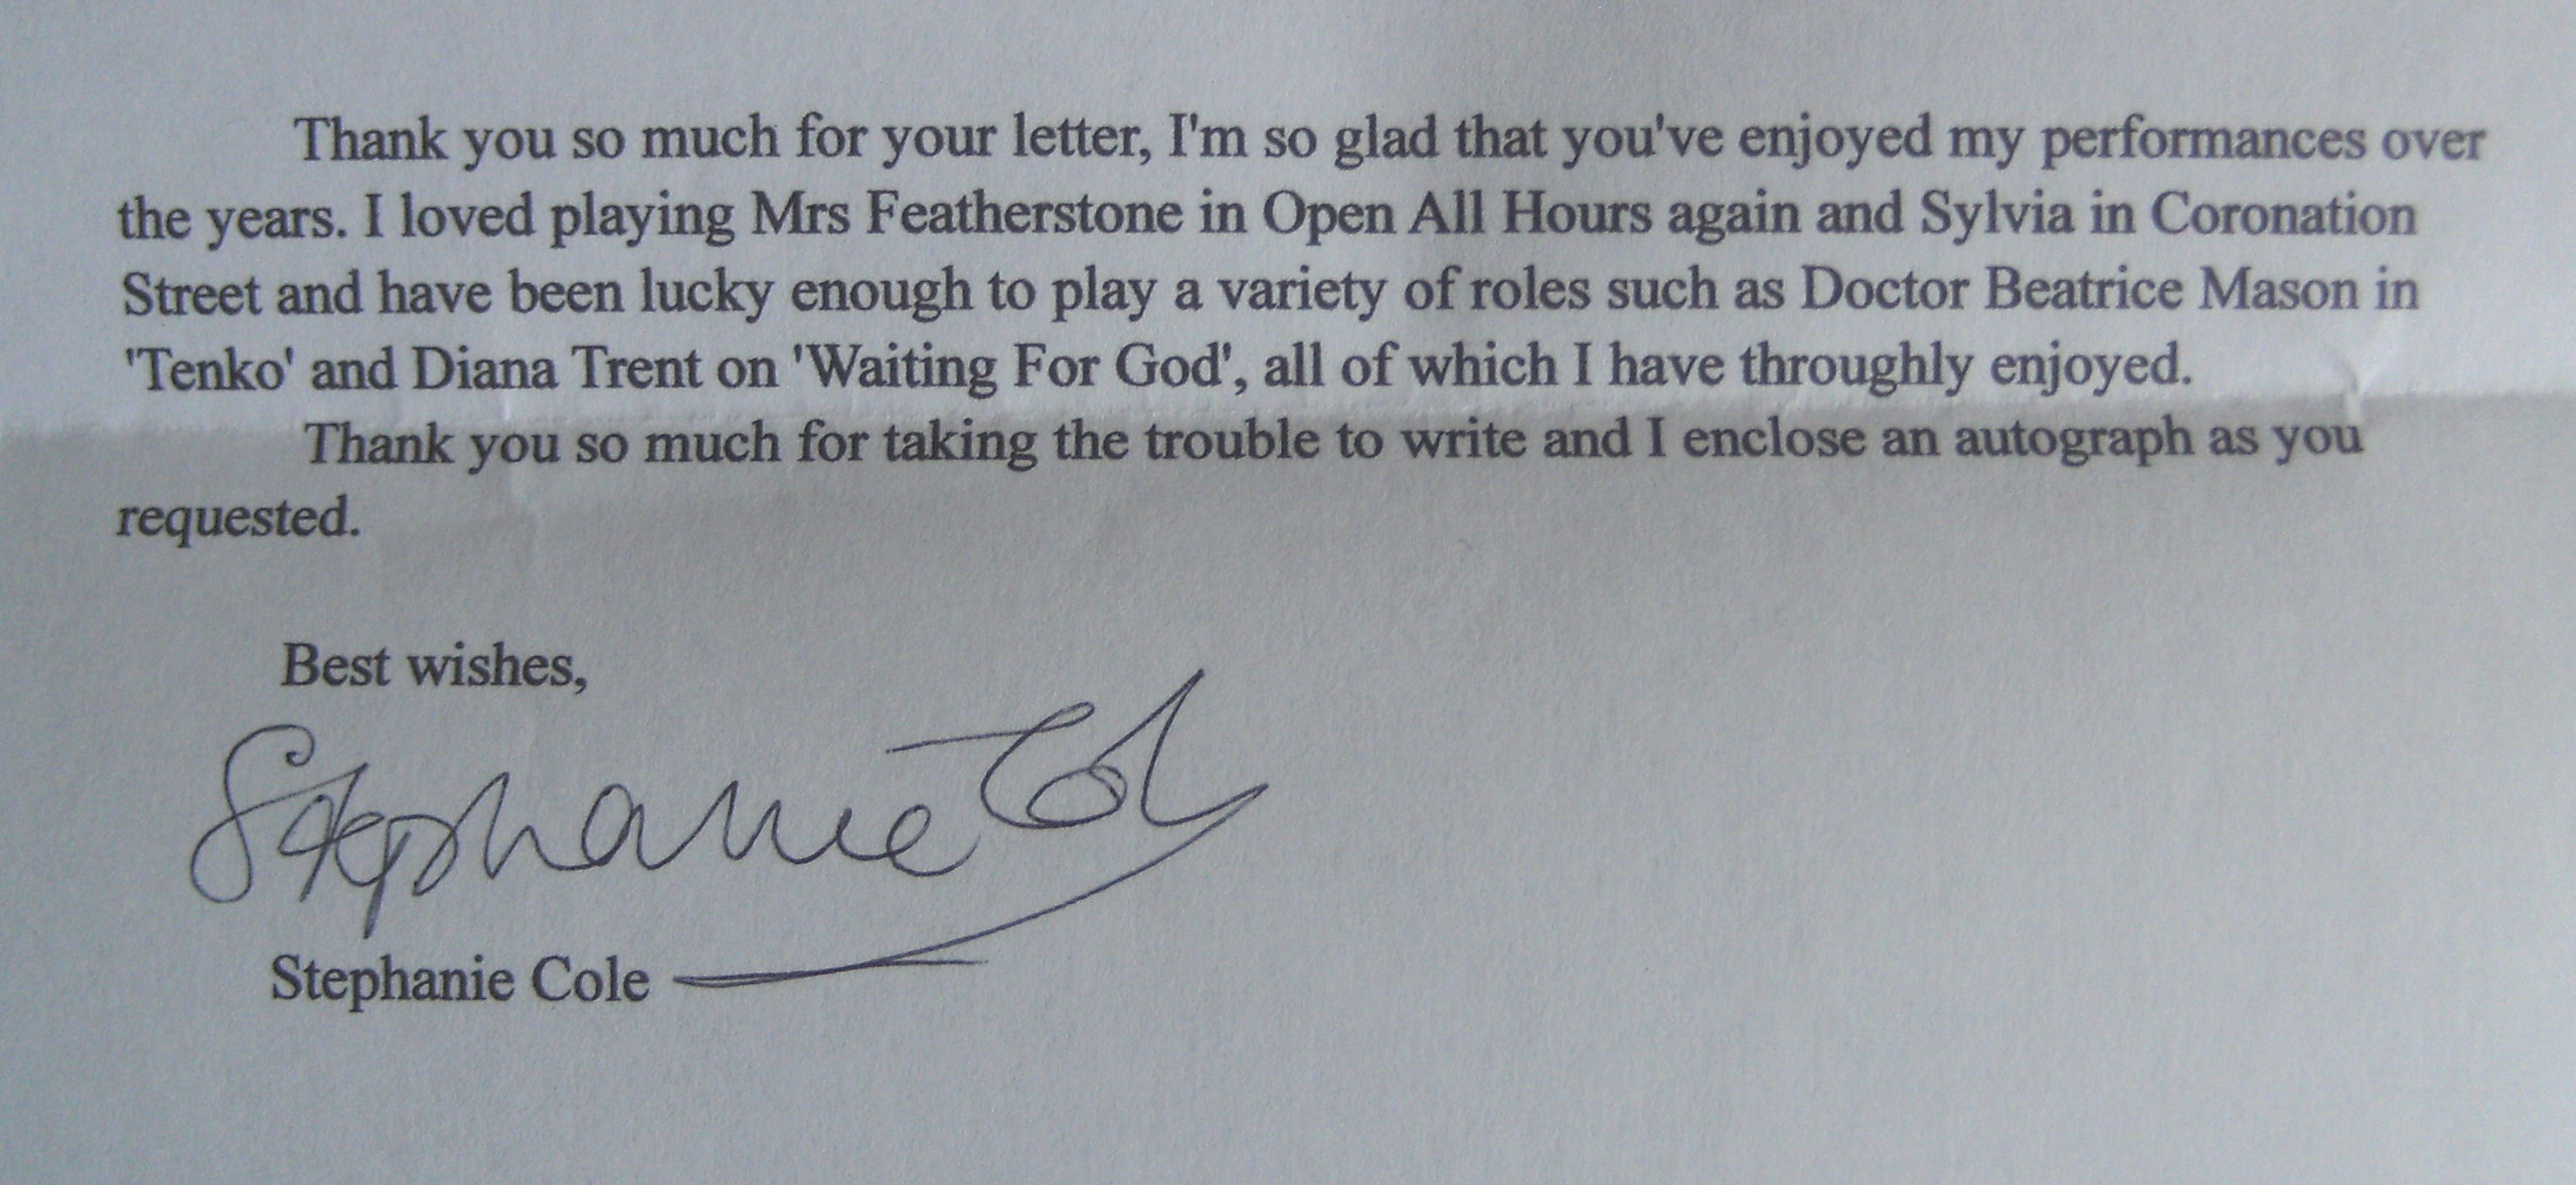 Thank you so much for your letter, I'm so glad that you've enjoyed my performances over
the years. I loved playing Mrs Featherstone in Open All Hours again and Sylvia in Coronation
Street and have been lucky enough to play a variety of roles such as Doctor Beatrice Mason in
'Tenko' and Diana Trent on 'Waiting For God', all of which I have throughly enjoyed.
Thank you so much for taking the trouble to write and I enclose an autograph as you
requested.
Best wishes,
Stephanie Cole
Stephanie Cole